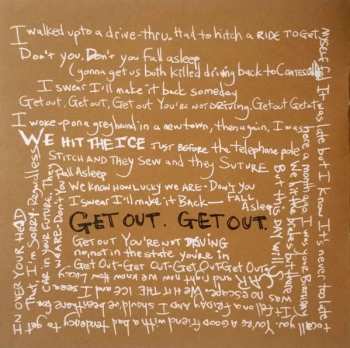 I walked up to a drive-thru. Had to hitch a RIDE TO GET
Don't you, Don't you Fall asleep
(gonna get us both killed driving back to
I swear I'll make it back someday
Get out, Get out, Get out You're not DRIVING. Get out Get out Get out
I woke-pon a greyhound in a new town, then again, I was
WE HIT THE ICE JUST BEFORE the telephone pole
STITCH AND They SEW and they SUTURE
Fall Asleep
We KNOW HOW LUCKY WE ARE - Don't you
I swear I'll make it Back - FALL
Asleep
GET OUT. GET OUT.
GET OUT YOU'RE NOT DRIVING
no, not in the state you're in
GET OUT - GET OUT - GET OUT GET OUT
MYSELF
It was late but I know It's never too late to call
here a month ago
We hit the brakes but there was
But this DAY will
SCAR
no escape. WE HIT THE ICE and I
It fell on a FRIDAY AND I should've
You're a good friend with a bad tendency to get
IN OVER YOUR HEAD
That, I'm SORRY. Regardless
CAR IN YOUR FUTURE. They
WE ARE - Don't You